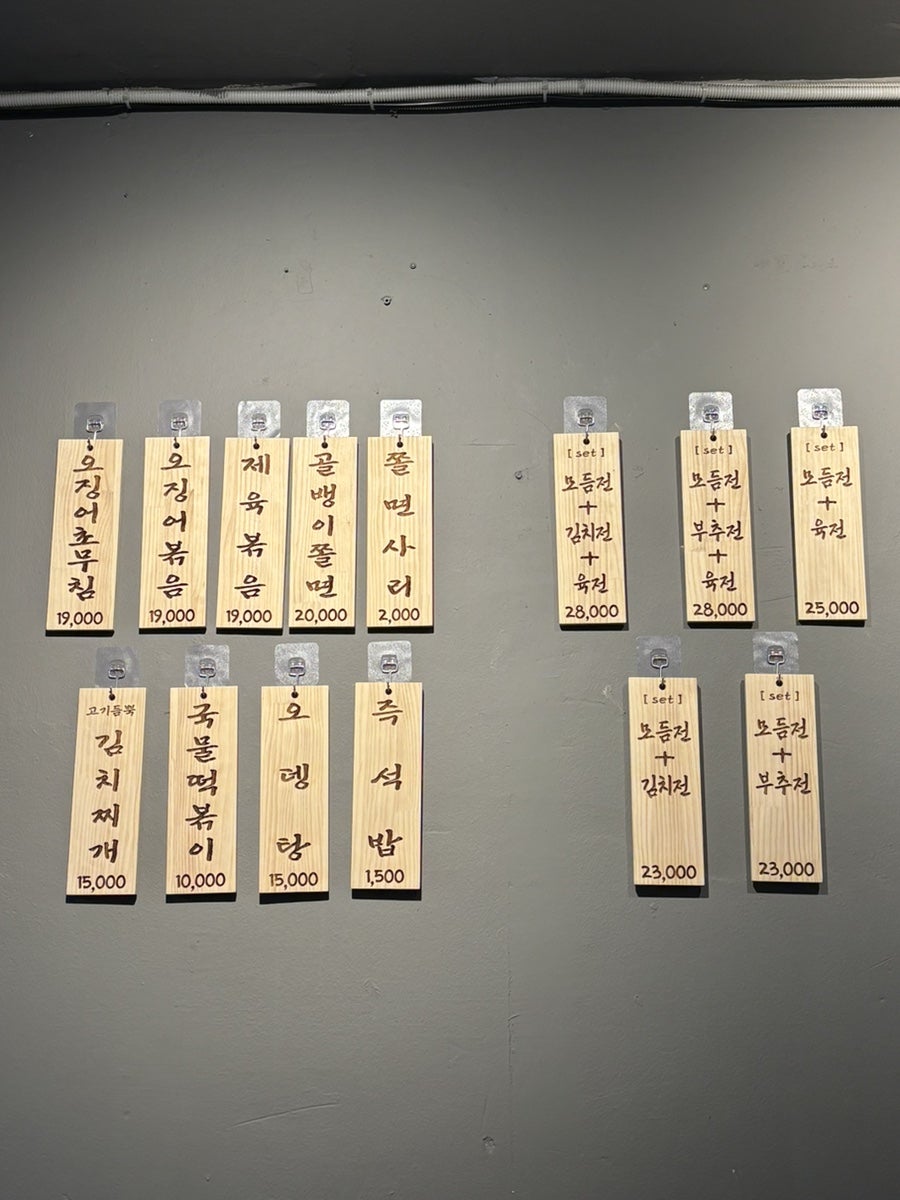 오징어초무침
19,000
오징어볶음
19,000
제육볶음
19,000
골뱅이쫄면
20,000
쫄면사리
2,000
[set]
모듬전
+
김치전
+
육전
28,000
[set]
모듬전
+
부추전
+
육전
28,000
[set]
모듬전
+
육전
25,000
고기듬뿍
김치찌개
15,000
국물떡볶이
10,000
오뎅탕
15,000
즉석밥
1,500
[set]
모듬전
+
김치전
23,000
[set]
모듬전
+
부추전
23,000